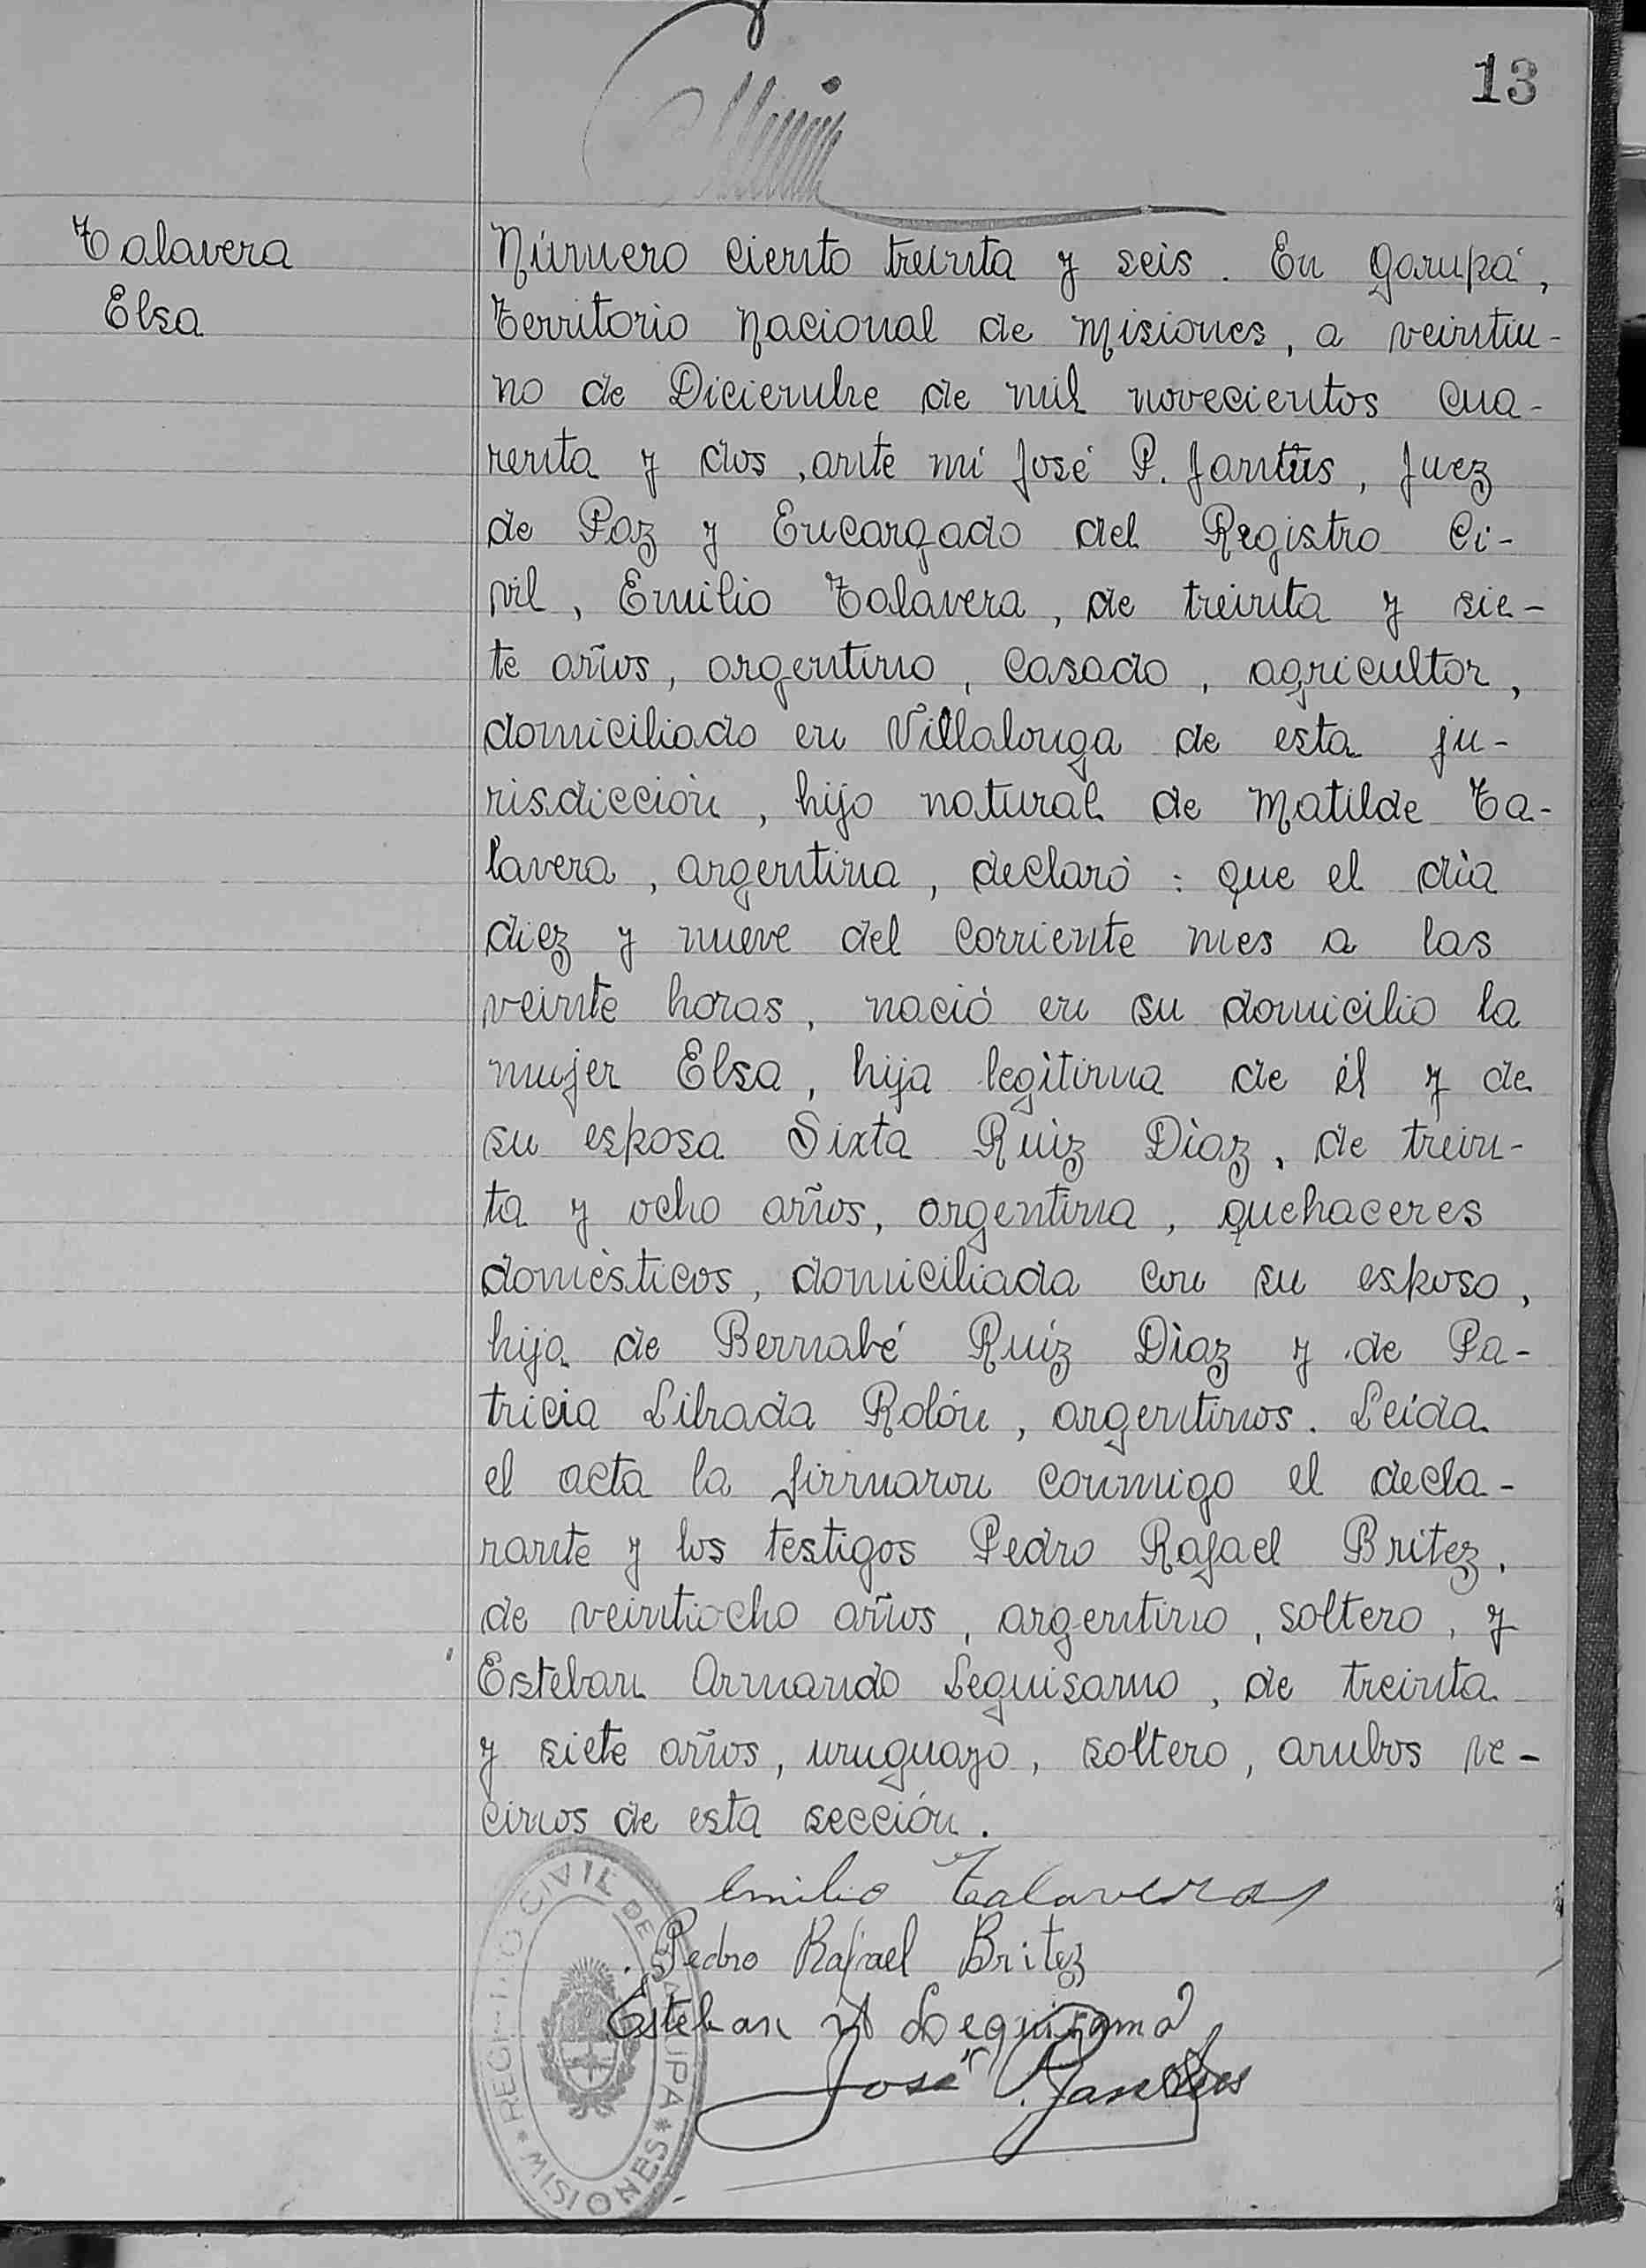 13
Talavera
Elsa
Número ciento treinta y seis. En Garupá,
Territorio Nacional de Misiones, a veintiu-
no de Diciembre de mil novecientos cua-
renta y dos, ante mí José P. Jantus, Juez
de Paz y Encargado del Registro Ci-
vil, Emilio Talavera, de treinta y sie-
te años, argentino, casado, agricultor,
domiciliado en Villalonga de esta ju-
risdicción, hijo natural de Matilde Ta-
lavera, argentina, declaró: que el día
diez y nueve del corriente mes a las
veinte horas, nació en su domicilio la
mujer Elsa, hija legítima de él y de
su esposa Sixta Ruiz Díaz, de trein-
ta y ocho años, argentina, quehaceres
domésticos, domiciliada con su esposo,
hija de Bernabé Ruíz Díaz y de Pa-
tricia Librada Rolón, argentinos. Leída
el acta la firmaron conmigo el decla-
rante y los testigos Pedro Rafael Britez,
de veintiocho años, argentino, soltero, y
Esteban Armando Leguisamo, de treinta
y siete años, uruguayo, soltero, ambos ve-
cinos de esta sección.
Emilio Talavera
Pedro Rafael Britez
Esteban A Leguisamo
José P. Jantus
REGISTRO CIVIL DE GARUPA * MISIONES *